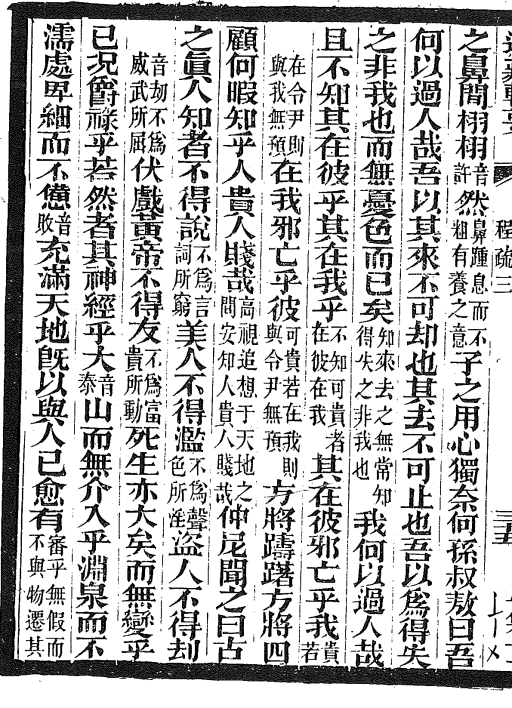 程疏三 三五
之鼻間栩栩音許然鼻踵息而不粗有養之意子之用心獨奈何孫叔敖曰吾
何以過人哉吾以其來不可却也其去不可止也吾以爲得失
之非我也而無憂色而已矣知來去之無常知得失之非我也我何以過人哉
且不知其在彼乎其在我乎不知可貴者在彼在我其在彼邪亡乎我若
在令尹則與我無預在我邪亡乎彼可貴若在我則與令尹無預方將躊躇方將四
顧何暇知乎人貴人賤哉高視追想于天地之間安知人貴人賤哉仲尼聞之曰古
之眞人知者不得說不爲言詞所窮美人不得濫不爲聲色所淫盜人不得刦
音刧不爲威武所屈伏戲黃帝不得友不爲富貴所動死生亦大矣而無變乎
已況爵祿乎若然者其神經乎大音泰山而無介入乎淵泉而不
濡處卑細而不憊音敗充滿天地旣以與人已愈有審乎無假而不與物遷其